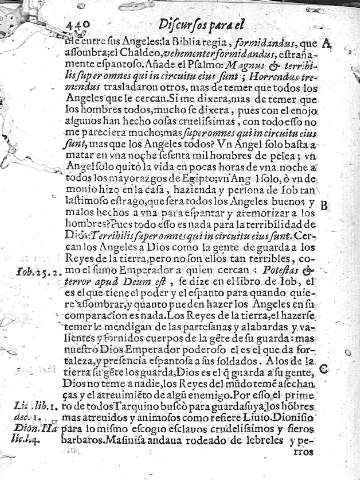 440 Discursos para el
me entre sus Angeles; la Biblia regia, formidandus, que A
assombra; el Chaldeo, vehementer formidandus, estraña-
mente espantoso. Añade el Psalmo: Magnus & terribi-
lis super omnes qui in circuitu eius sunt; Horrendus tre-
mendus trasladaron otros, mas de temer que todos los
Angeles que le cercan. Si me dixera, mas de temer que
los hombres todos, mucho se dixera, pues con el enojo
algunos han hecho cosas cruelissimas, con todo esso no
me pareciera mucho; mas super omnes qui in circuitu eius
sunt, mas que los Angeles todos? Vn Angel solo basta a
matar en vna noche sesenta mil hombres de pelea; vn
Angel solo quitò la vida en pocas horas de vna noche a
todos los mayorazgos de Egipto; vn Ang. solo, ò vn de-
monio hizo en la casa, hazienda y persona de Iob tan
lastimoso estrago, que serà todos los Angeles buenos y
malos hechos a vna para espantar y atemorizar a los B
hombres? Pues todo esso es nada para la terribilidad de
Dios: Terribilis super omnes qui in circuitu eius sunt. Cer-
can los Angeles a Dios como la gente de guarda a los
Reyes de la tierra, pero no son ellos tan terribles, co-
Iob. 25. 2. mo el sumo Emperador a quien cercan: Potestas &
terror apud Deum est, se dize en el libro de Iob, el
es el que tiene el poder y el espanto para quando quie-
re assombrar, y quanto pueden hazer los Angeles en su
comparacion es nada. Los Reyes de la tierra, el hazerse
temer le mendigan de las partesanas y alabardas y va-
lientes y fornidos cuerpos de la gẽte de su guarda: mas
nuestro Dios Emperador poderoso el es el que da for-
taleza, y presencia espantosa a sus soldados. A los de la
tierra su gẽte los guarda, Dios es el q̃ guarda a su gente, C
Dios no teme a nadie, los Reyes del mũdo temẽ asechan-
ças y el atreuimiẽto de algũ enemigo. Por esso, el prime
Liu. lib. 1. ro de todos Tarquino buscò para guarda suya los hõbres
dec. 1. mas atreuidos y animosos como refiere Liuio. Dionisio
Dion. Ha para lo mismo escogio esclauos crudelissimos y fieros
lic. l. 4. barbaros. Masinisa andaua rodeado de lebreles y pe-
rros